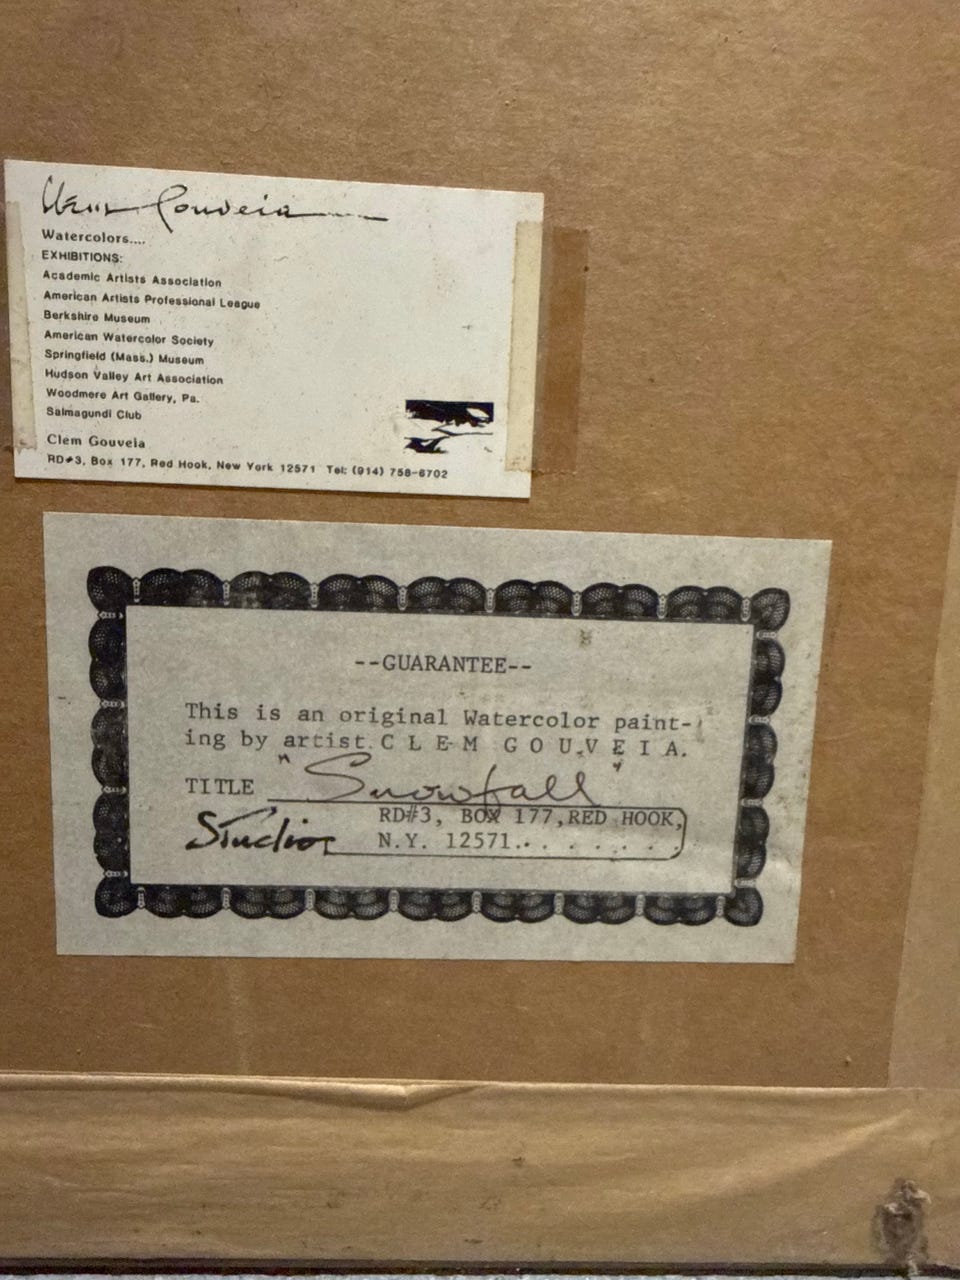 Clem Gouveia
Watercolors....
EXHIBITIONS:
Academic Artists Association
American Artists Professional League
Berkshire Museum
American Watercolor Society
Springfield (Mass.) Museum
Hudson Valley Art Association
Woodmere Art Gallery, Pa.
Salmagundi Club
Clem Gouveia
RD#3, Box 177, Red Hook, New York 12571 Tel: (914) 758-6702
--GUARANTEE--
This is an original Watercolor paint-
ing by artist C L E M G O U V E I A.
TITLE "Snowfall"
Studios RD#3, BOX 177, RED HOOK,
N.Y. 12571. . . . . . . .